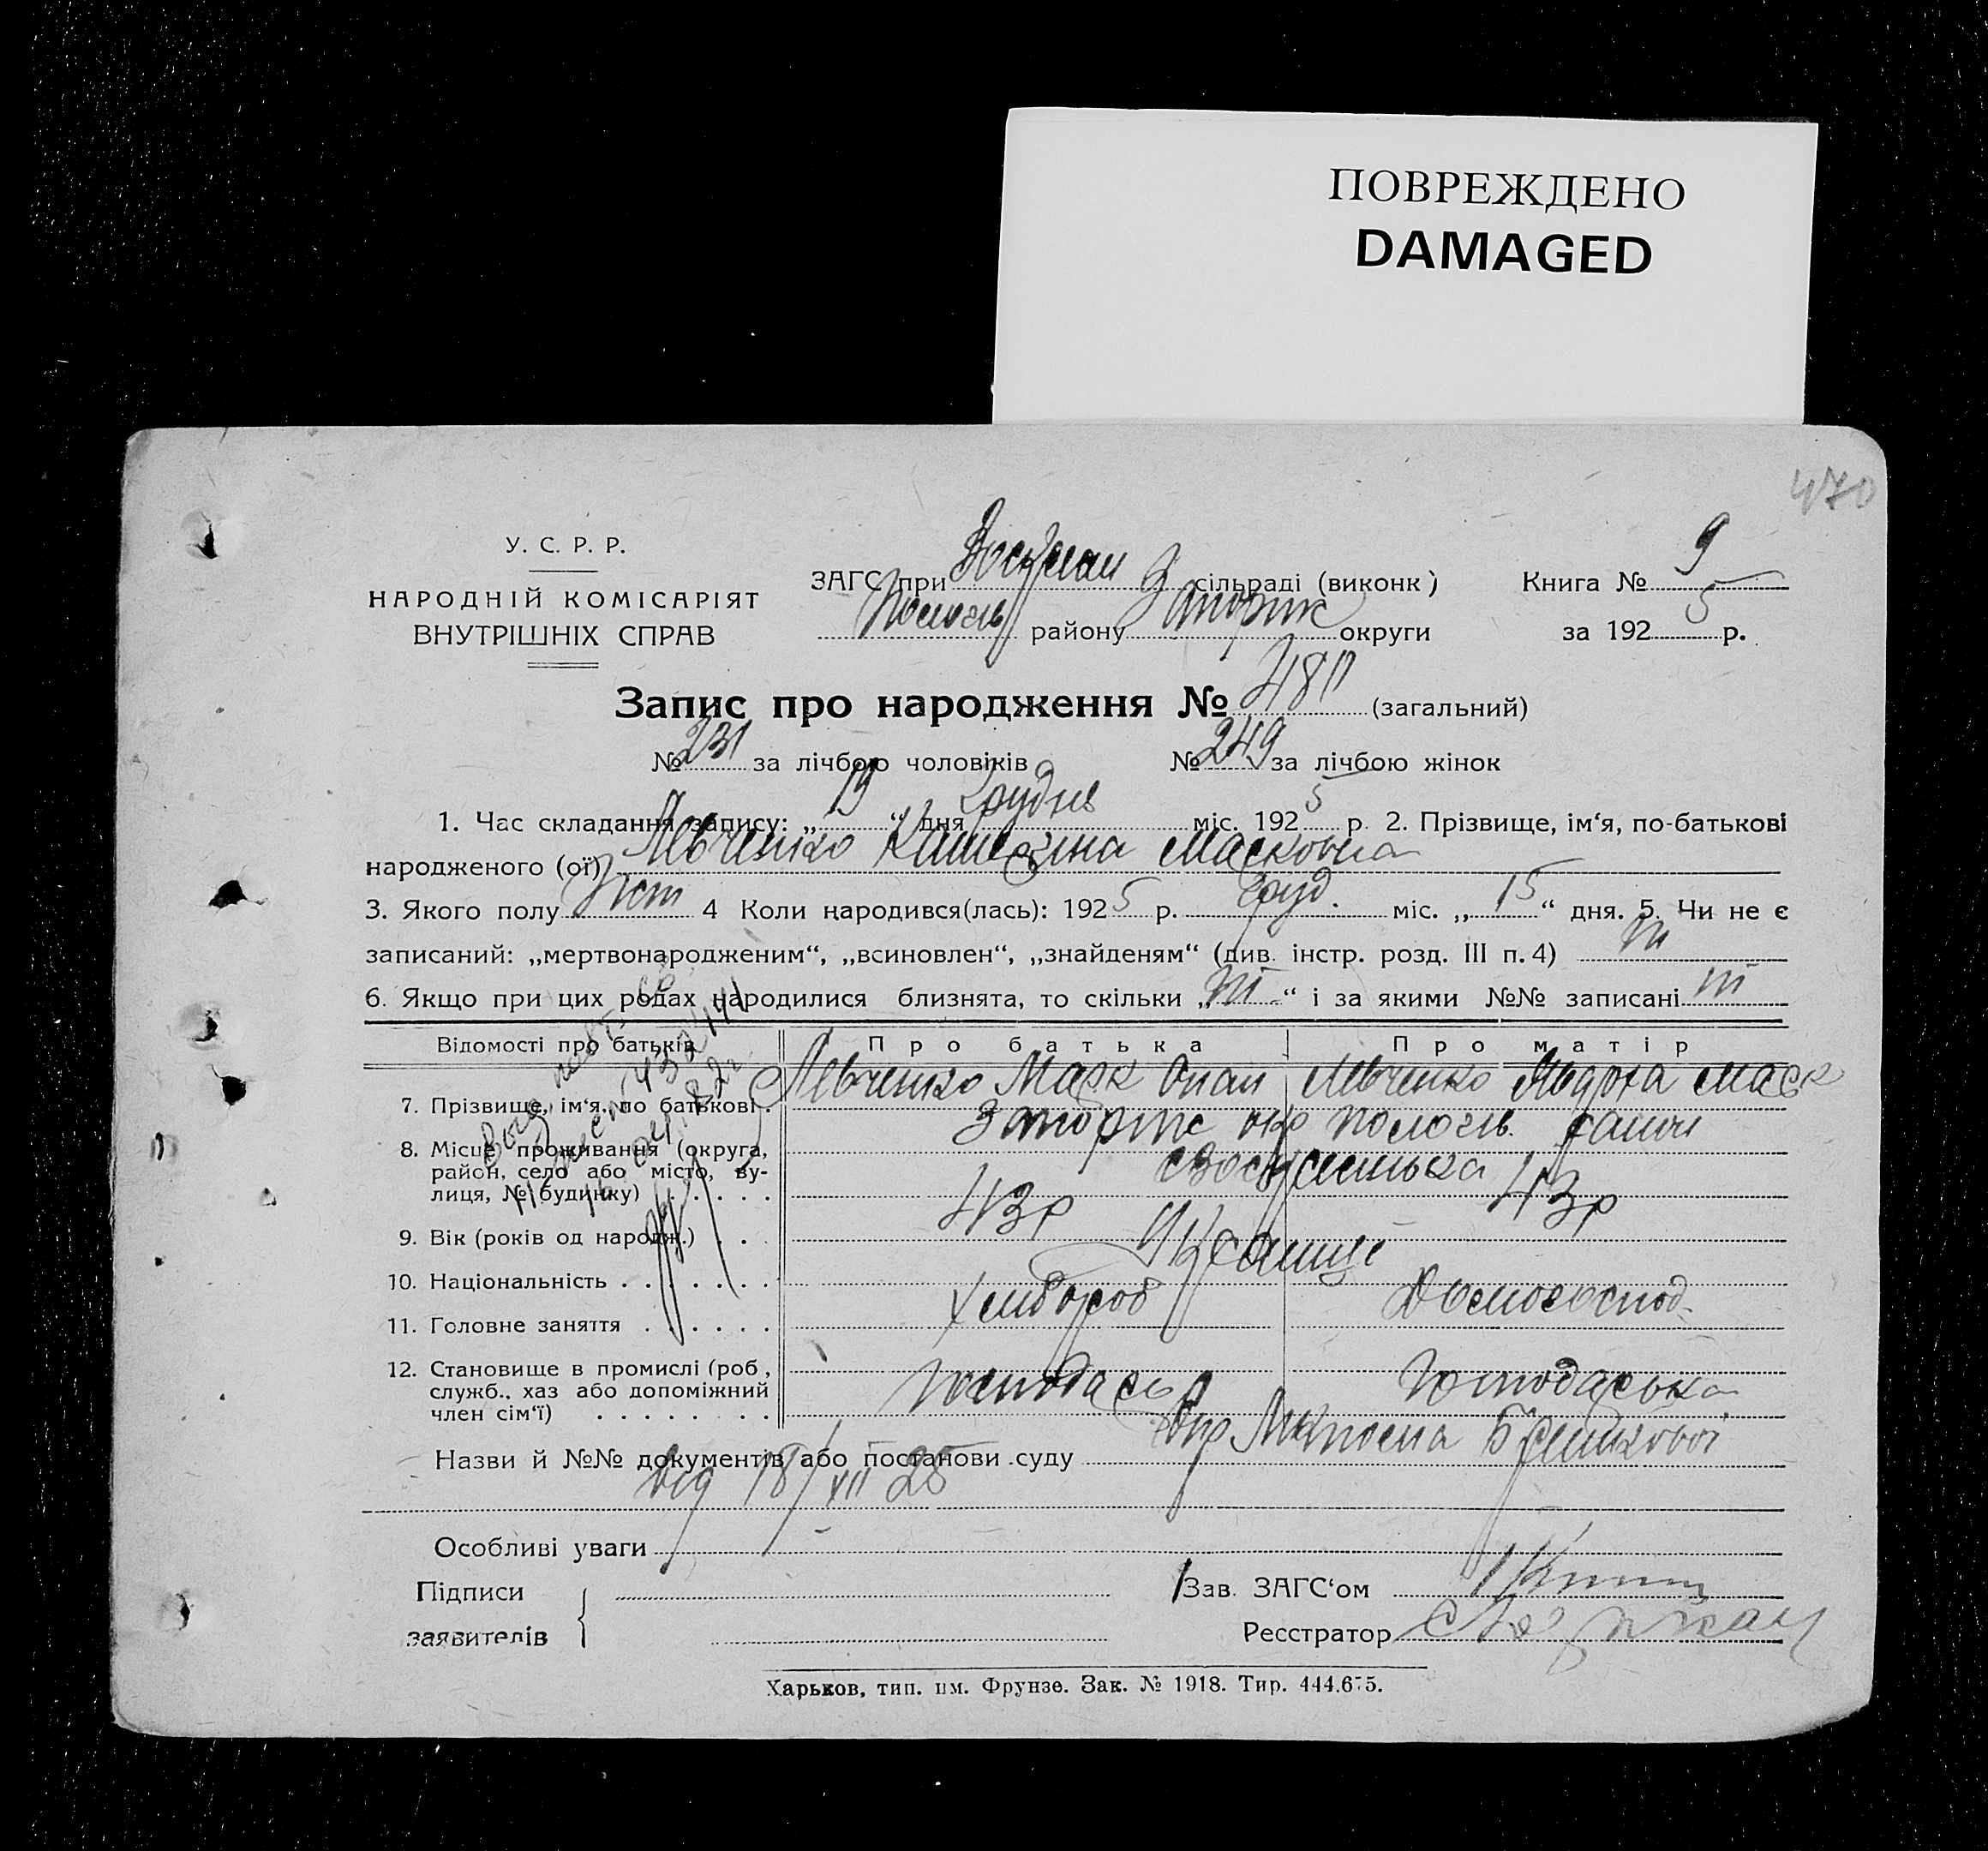 ПОВРЕЖДЕНО
DAMAGED
470
У. С. Р. Р.
НАРОДНІЙ КОМІСАРІЯТ
ВНУТРІШНІХ СПРАВ
ЗАГС при сільраді (виконк) Книга № 9
району Запоріж округи за 1925 р.
Запис про народження № 480 (загальний)
№ 231 за лічбою чоловіків № 249 за лічбою жінок
1. Час складання запису: „ 19 “ дня Грудня міс. 1925 р. 2. Прізвище, ім‘я, по-батькові
народженого (ої) Левченко Катерина Марковна
3. Якого полу Жст 4 Коли народився(лась): 1925 р. Груд. міс. „ 15 “ дня. 5. Чи не є
записаний: „мертвонародженим“, „всиновлен“, „знайденям“ (див. інстр. розд. III п. 4)
6. Якщо при цих родах народилися близнята, то скільки „ “ і за якими №№ записані
Відомості про батьків Про батька Про матір
7. Прізвище, ім‘я, по батькові. Левченко Марк Левченко Марк
8. Місце проживання (округа, Запоріж окр Пологів. район
район, село або місто, ву-
лиця, № будинку)
9. Вік (років од народж.) 43 р 43 р
10. Національність Українці
11. Головне заняття Хлібороб Домогоспод.
12. Становище в промислі (роб,
служб., хаз або допоміжний
член сім‘ї) Господарь Господарька
Назви й №№ документів або постанови суду
від 18/XII 25
Особливі уваги
Підписи
заявителів
Зав. ЗАГС‘ом
Реєстратор
Харьков, тип. им. Фрунзе. Зак. № 1918. Тир. 444.675.